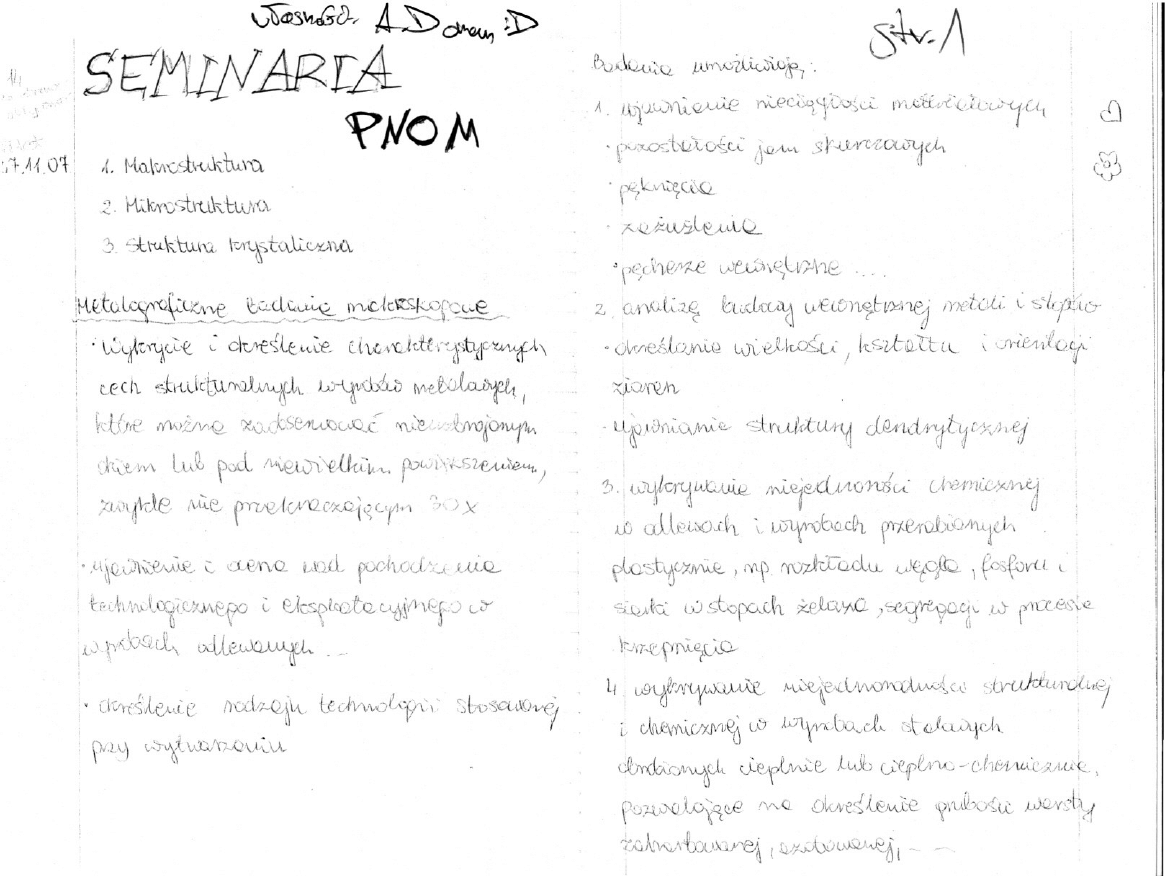 własność A.D :D
SEMINARIA
PNOM
27.11.07
1. Makrostruktura
2. Mikrostruktura
3. Struktura krystaliczna
Metalograficzne badania makroskopowe
• wykrycie i określenie charakterystycznych
cech strukturalnych wyrobów metalowych,
które można zaobserwować nieuzbrojonym
okiem lub pod niewielkim powiększeniem,
zwykle nie przekraczającym 30x
• ujawnienie i ocena wad pochodzenia
technologicznego i eksploatacyjnego w
wyrobach odlewanych ...
• określenie rodzaju technologii stosowanej
przy wytwarzaniu
str. 1
Badania umożliwiają:
1. ujawnienie nieciągłości materiałowych
• pozostałości jam skurczowych
• pęknięcia
• zażużlenia
• pęcherze wewnętrzne ....
2. analizę budowy wewnętrznej metali i stopów
• określanie wielkości, kształtu i orientacji
ziaren
• ujawnianie struktury dendrytycznej
3. wykrywanie chemicznej
w odlewach i wyrobach przerabianych
plastycznie, np. rozkładu węgla, fosforu i
siarki w stopach żelaza, segregacji w procesie
krzepnięcia
4. wykrywanie niejednorodności strukturalnej
i chemicznej w wyrobach stalowych
obrobionych cieplnie lub cieplno-chemicznie,
pozwalające na określenie grubości warstwy
zahartowanej, azotowanej, ...